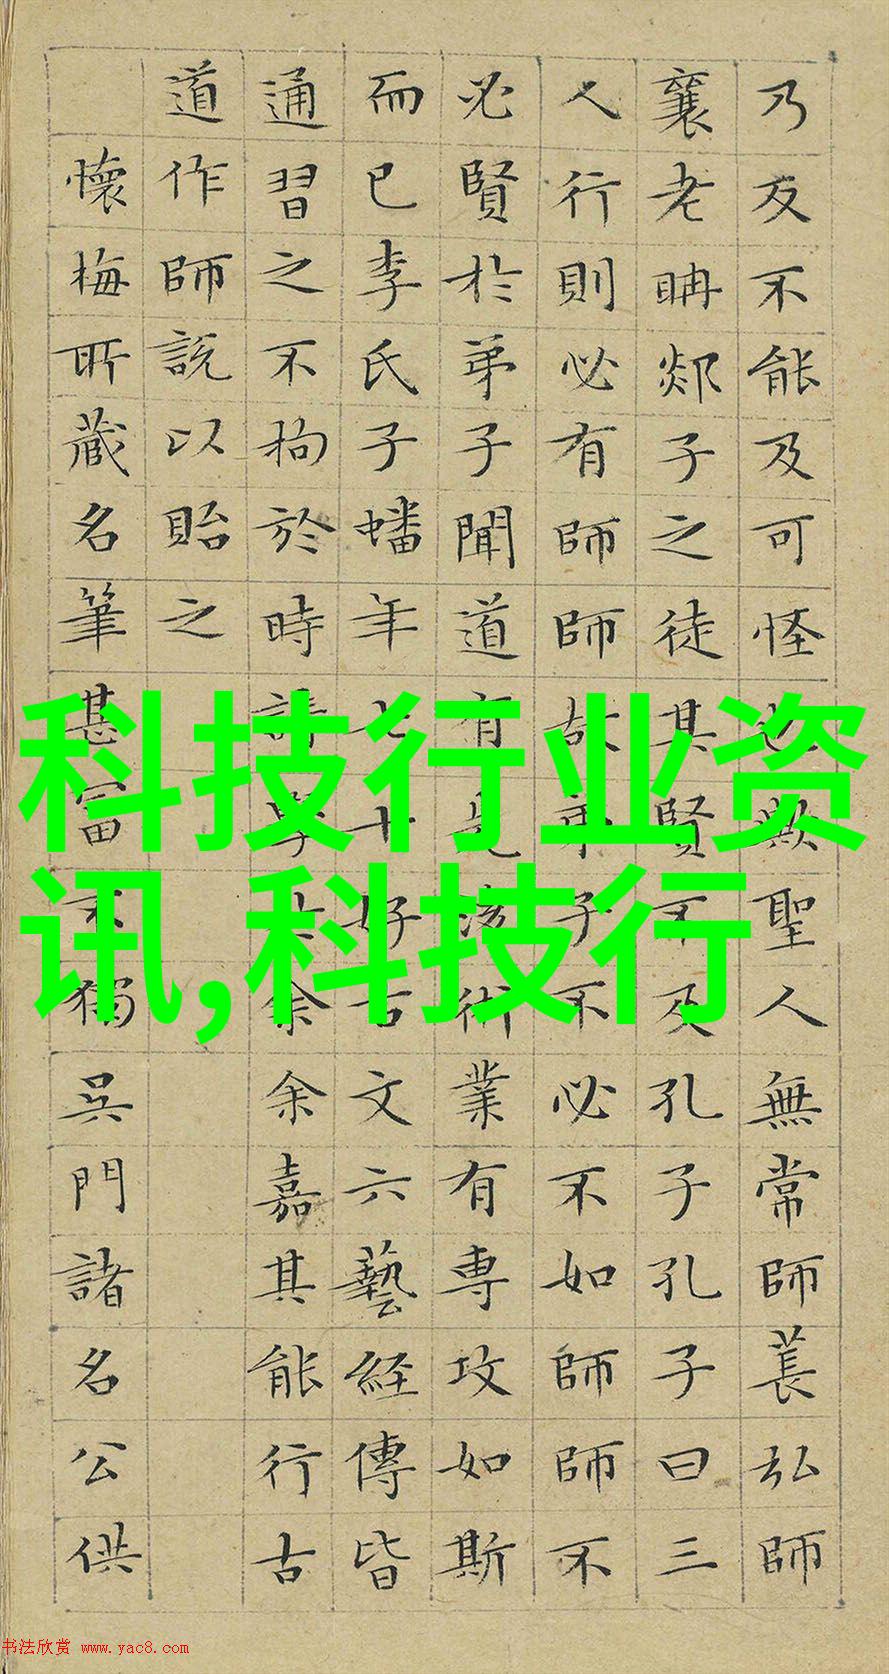 乃反不能及可怪也歟聖人無常師萇弘師
襄老聃郯子之徒其賢不及孔子孔子曰三
人行則必有師師故弟子不必不如師師不
必賢於弟子聞道有先後術業有專攻如斯
而已李氏子蟠年七十好古文六藝經傳皆
通習之不拘於時請學於余余嘉其能行古
道作師說以貽之
懷梅所藏名筆甚富不獨吳門諸名公供
科技行业资
讯,科技行
书法欣赏 www.yac8.com